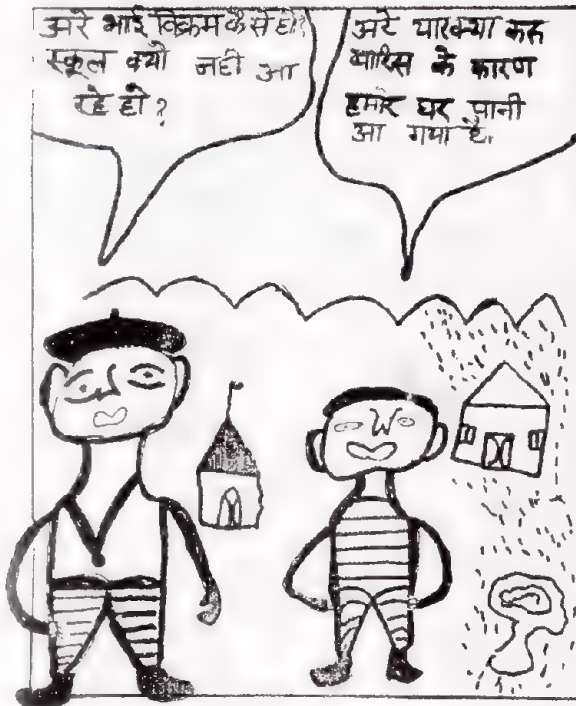 अरे भाई विक्रम कैसे हो?
स्कूल क्यों नही आ
रहे हो?
अरे यार क्या करू
बारिस के कारण
हमारे घर पानी
आ गया है.